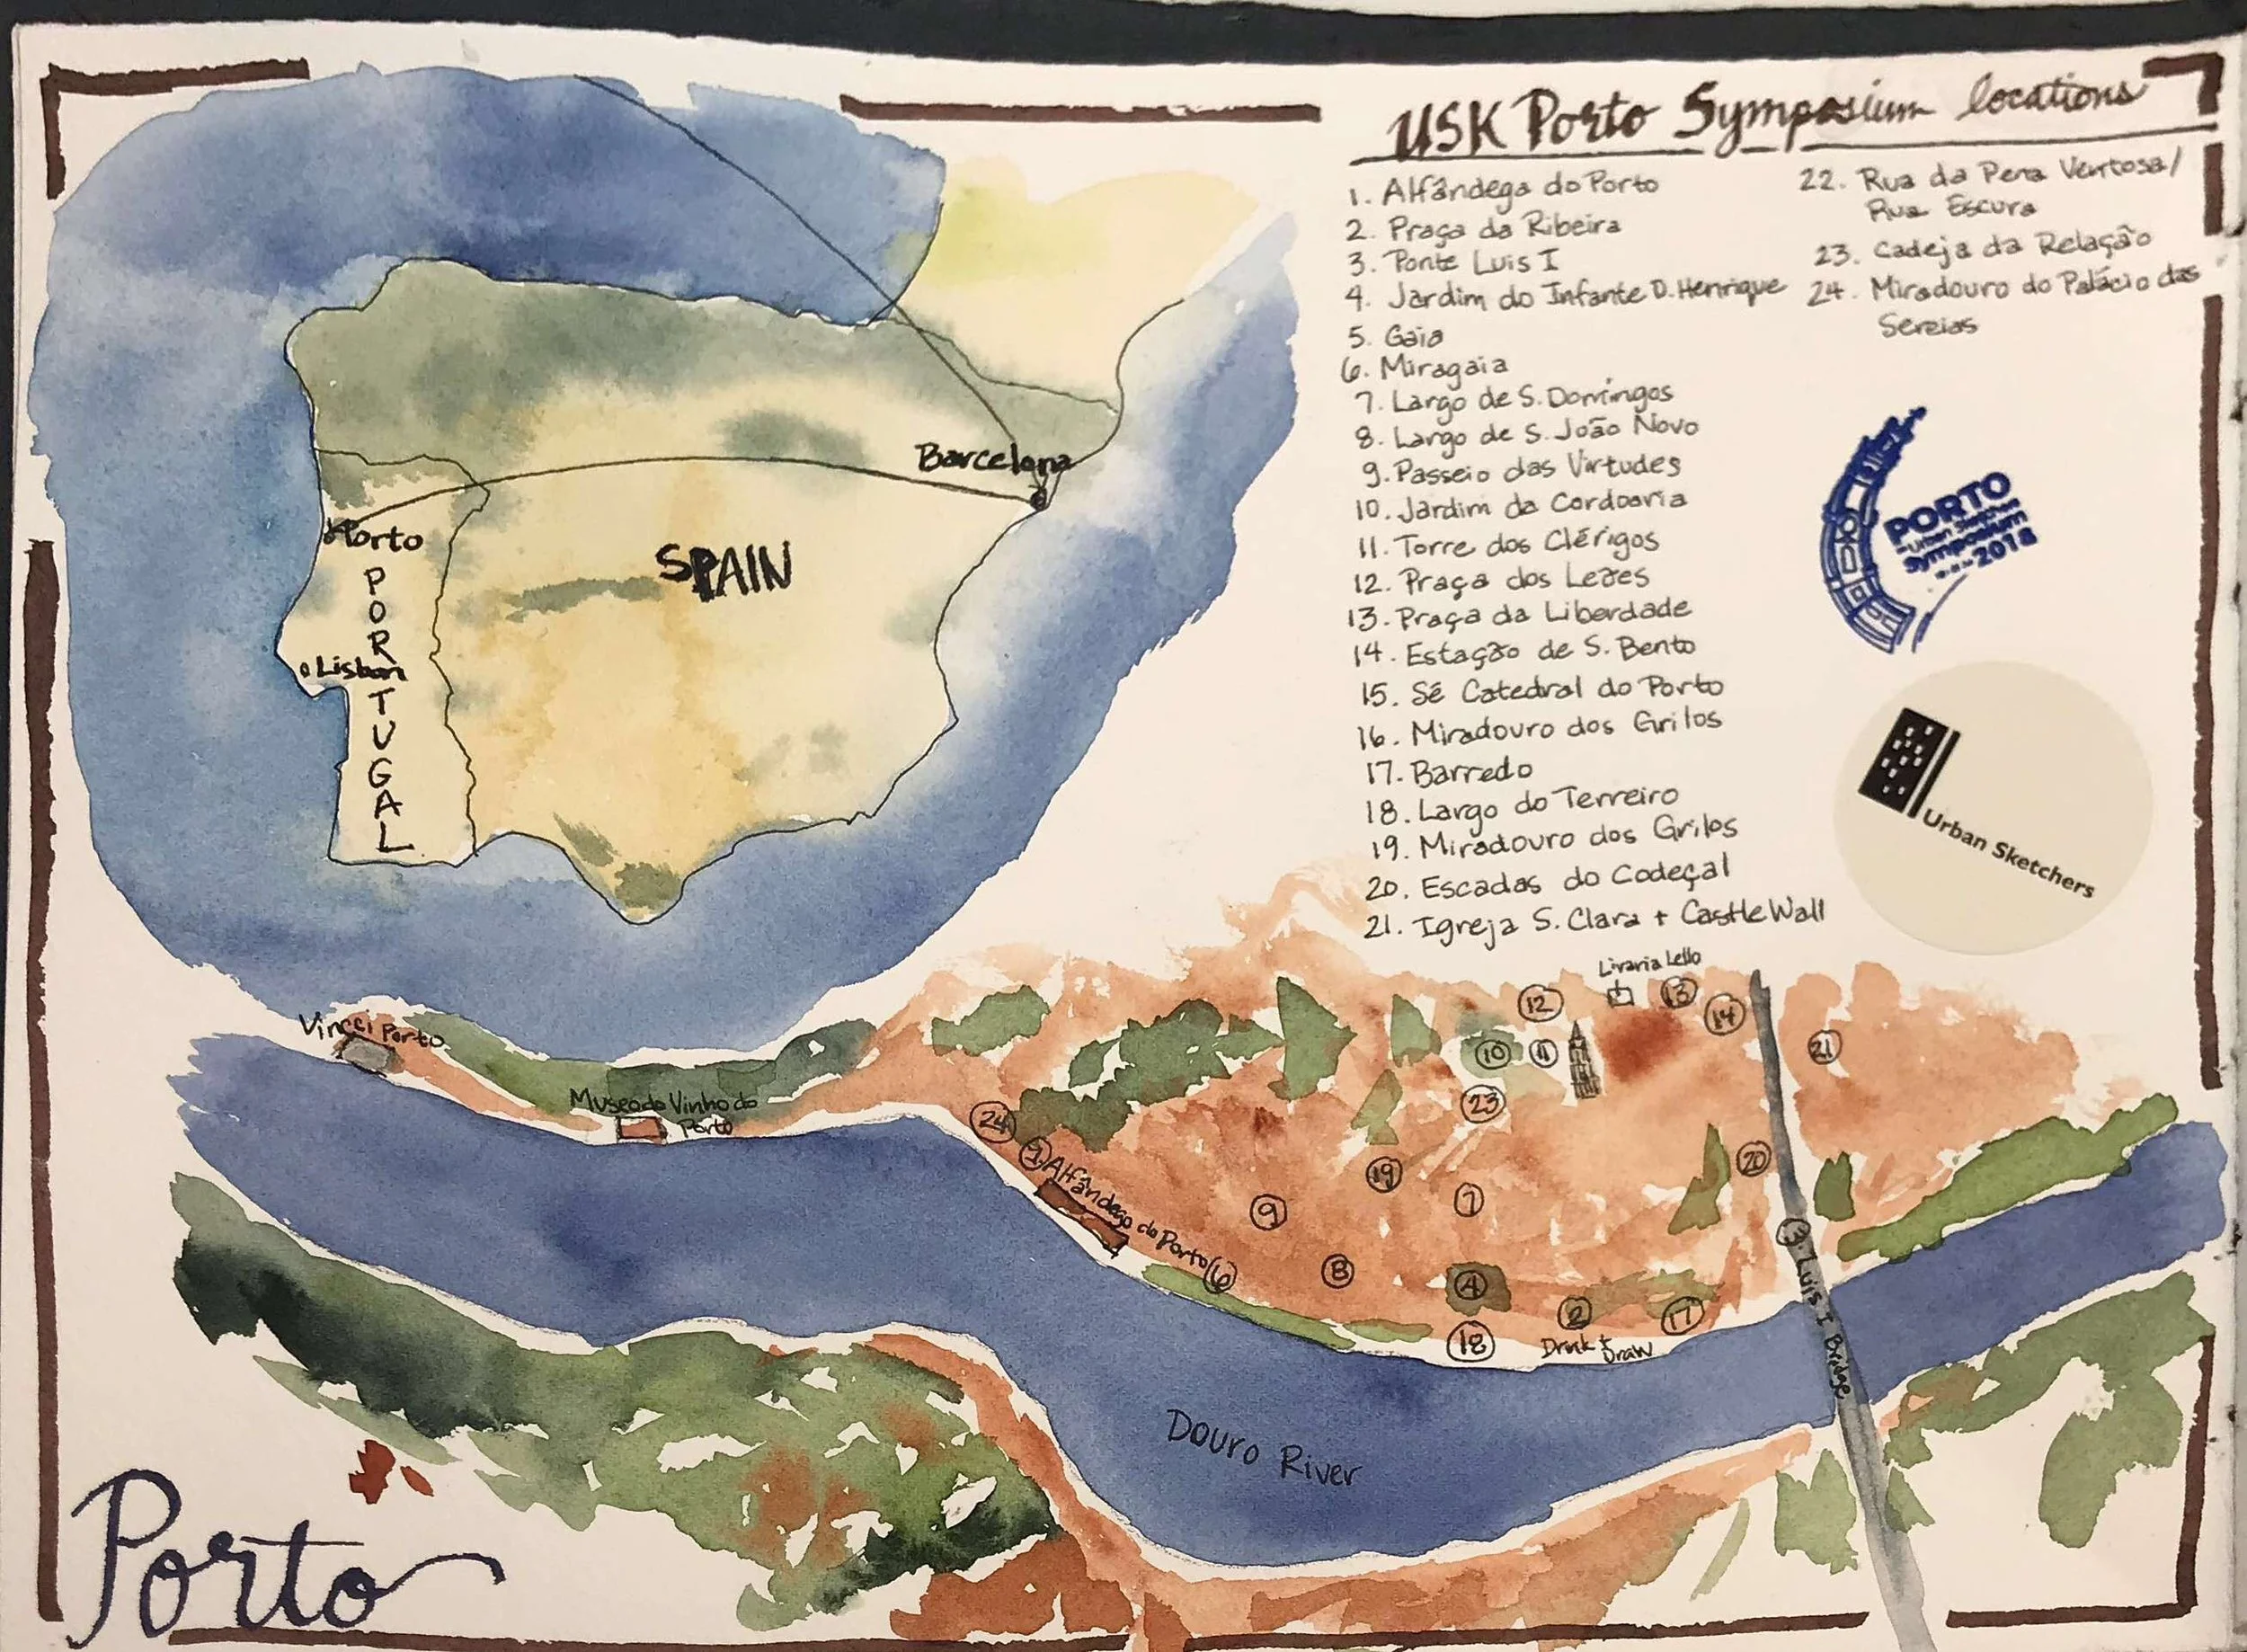 USK Porto Symposium locations
1. Alfândega do Porto
2. Praça da Ribeira
3. Ponte Luis I
4. Jardim do Infante D. Henrique
5. Gaia
6. Miragaia
7. Largo de S. Domingos
8. Largo de S. João Novo
9. Passeio das Virtudes
10. Jardim da Cordoaria
11. Torre dos Clérigos
12. Praça dos Leões
13. Praça da Liberdade
14. Estação de S. Bento
15. Sé Catedral do Porto
16. Miradouro dos Grilos
17. Barredo
18. Largo do Terreiro
19. Miradouro dos Grilos
20. Escadas do Codeçal
21. Igreja S. Clara + Castle Wall
22. Rua da Pena Ventosa/
Rua Escura
23. Cadeja da Relação
24. Miradouro do Palácio das
Sereias
PORTO
Urban Sketchers
Symposium
2018
Urban Sketchers
Barcelona
Porto
SPAIN
PORTUGAL
Lisbon
Vincci Porto
Museo do Vinho do
Porto
Livraria Lello
12
13
14
10
11
21
23
24
1 Alfândega do Porto
20
19
7
9
3. Luis I Bridge
6
8
4
2
17
18
Drink +
Draw
Douro River
Porto